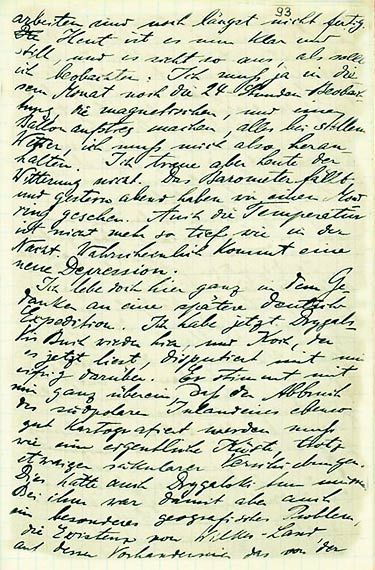 93
arbeiten und noch längst nicht fertig.
Heut ist es nun klar und
still und es sieht so aus, als solle
ich beobachten. Ich muß ja in die
sem Monat noch die 24 Stunden Beobach
tung, die magnetischen, und einen
Ballonaufstieg machen, alles bei stillem
Wetter, ich muß mich also heran
halten. Ich traue aber heute der
Witterung nicht. Das Barometer fällt,
und gestern abend haben wir einen Mond
ring gesehen. Auch die Temperatur
ist nicht mehr so tief wie in der
Nacht. Wahrscheinlich kommt eine
neue Depression.
Ich lebe doch hier ganz in dem Ge
danken an eine spätere deutsche
Expedition. Ich habe jetzt Drygals
kis Buch wieder hier, und Koch, der
es jetzt liest, disputiert mit mir
eifrig darüber. Er stimmt mit
mir ganz überein, daß der Abbruch
des südpolaren Inlandeises ebenso
gut kartografiert werden muß
wie eine eigentliche Küste, trotz
etwaiger säkularer Verschiebungen.
Dies hätte auch Drygalski tun müssen.
Bei ihm war damit aber auch
ein besonderes geografisches Problem,
die Existenz von Wilkes-Land,
auf dessen Vorhandensein das von der